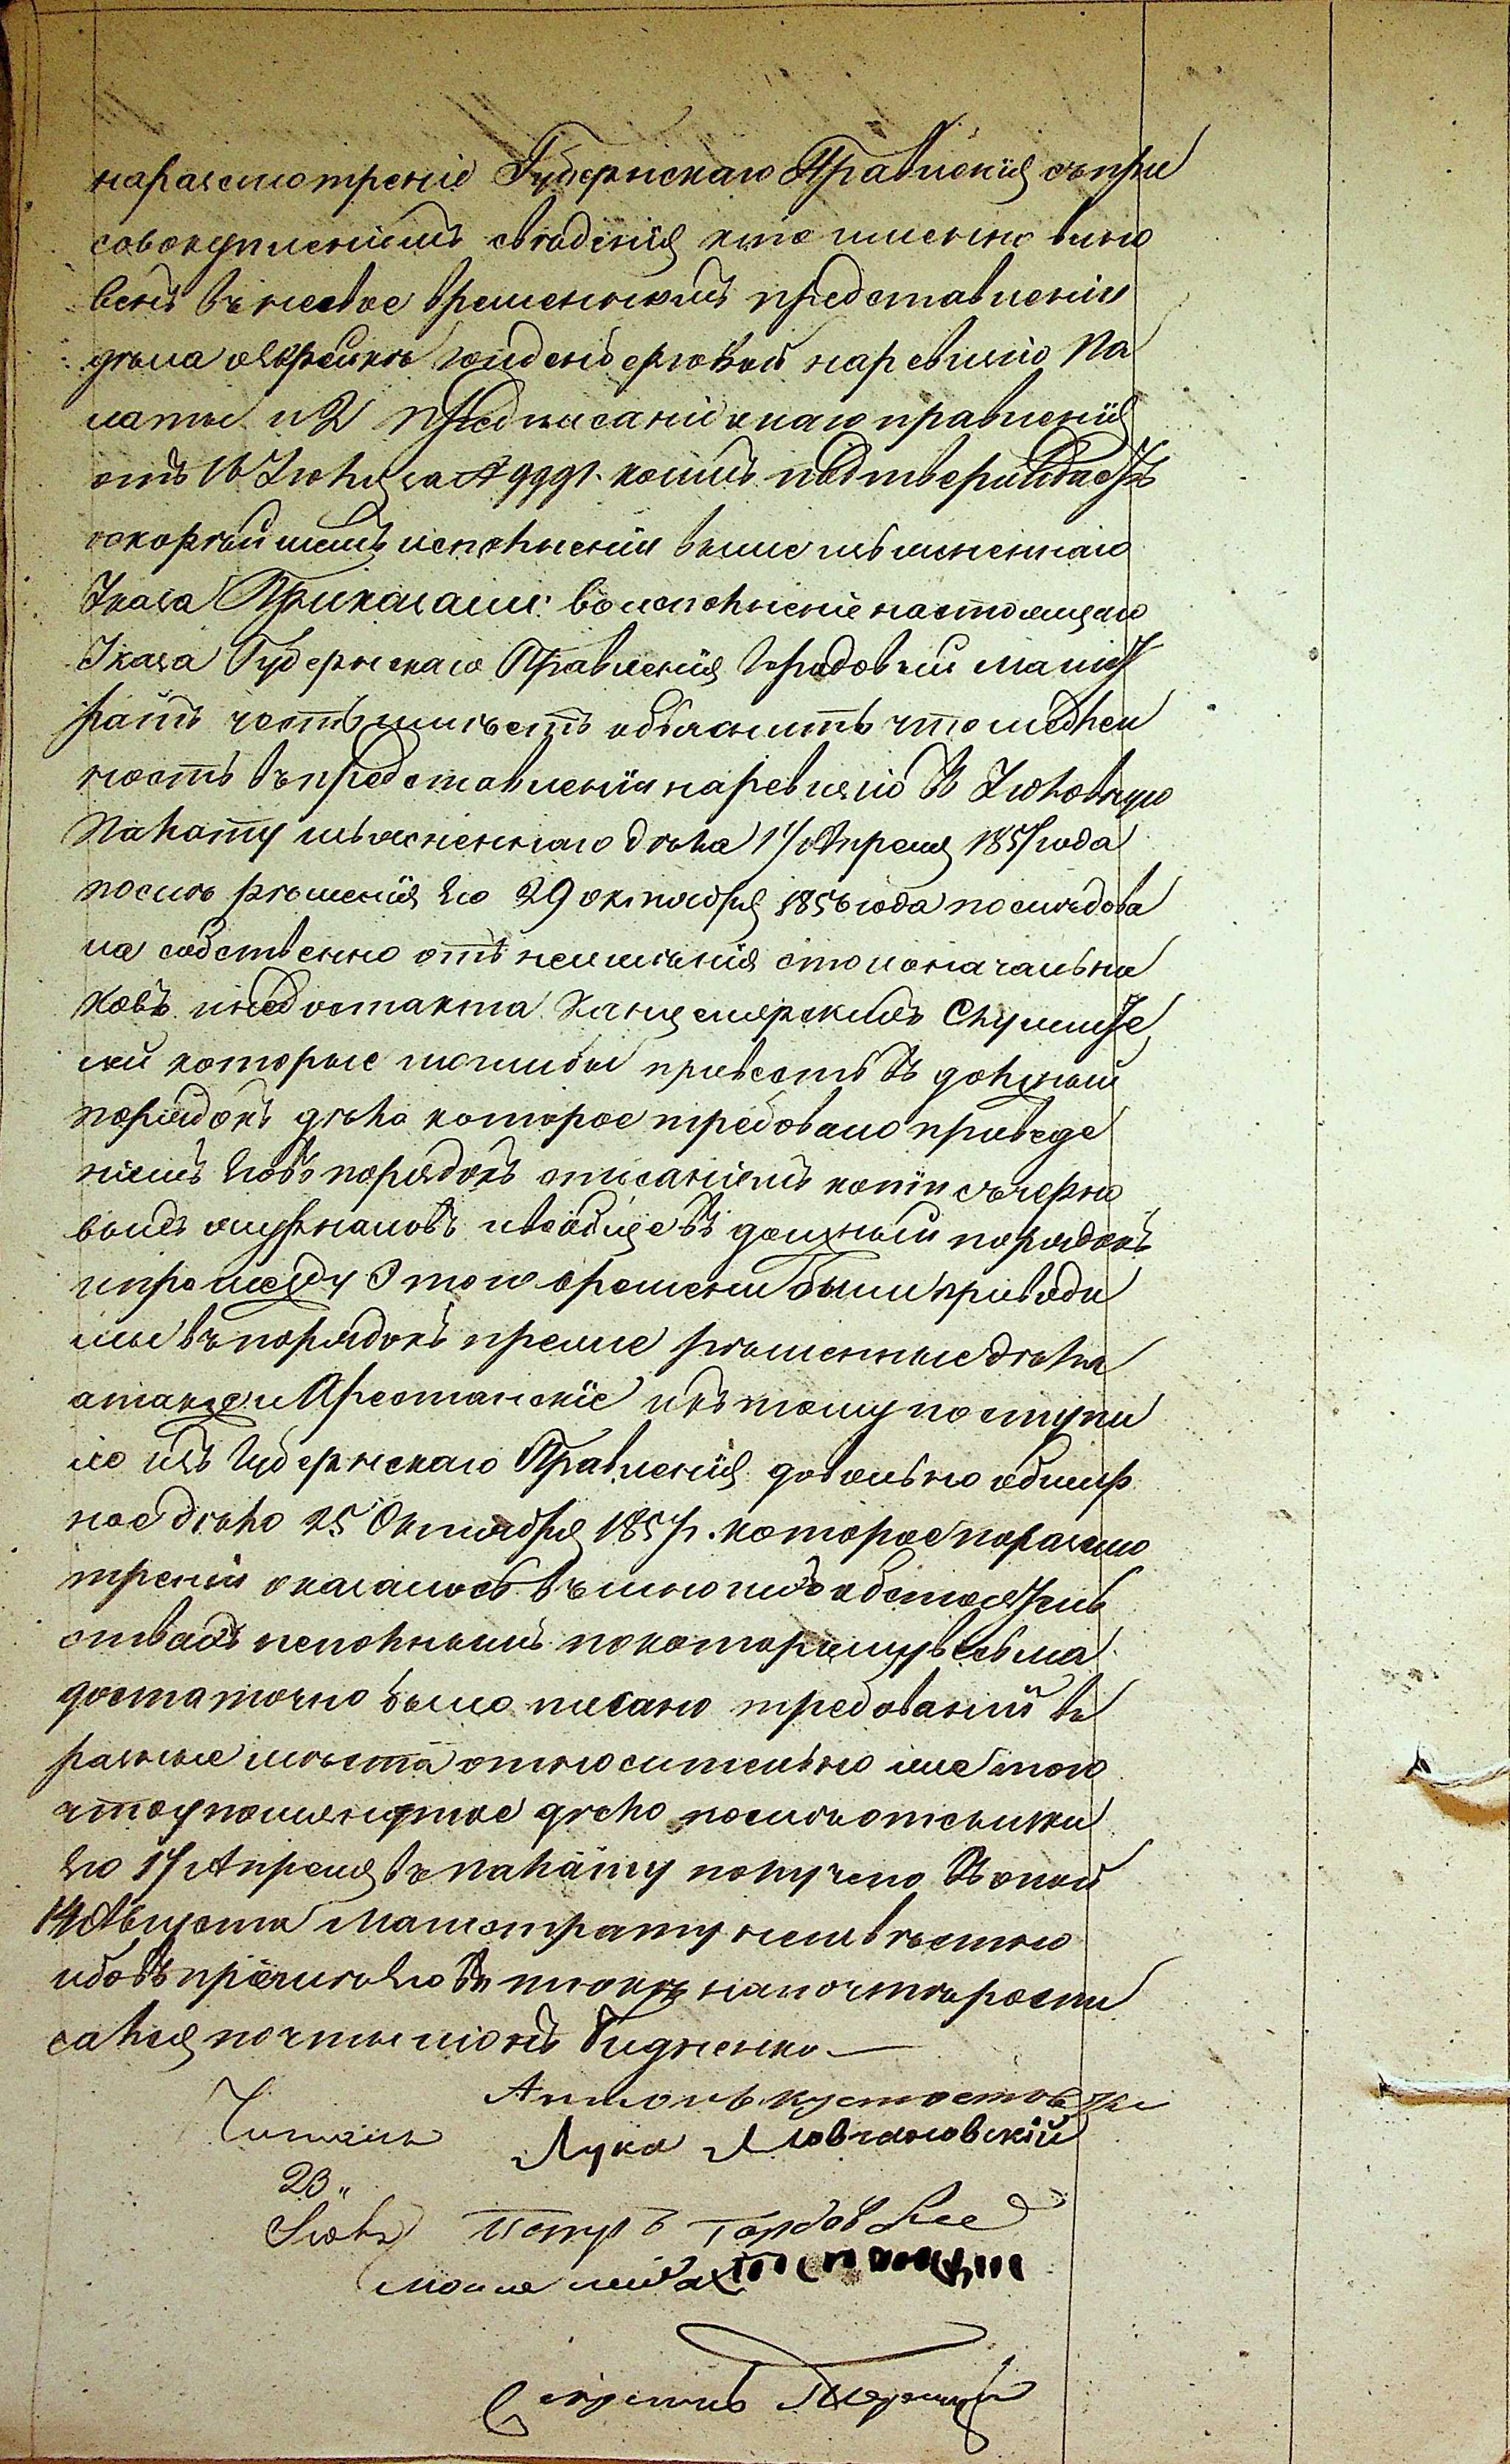 на разсмотреніе Губернскаго Правленія съ при
совокупленіемъ сведенія кто именно вино
венъ въ несвое временномъ представленіи
дела о Еврейке на ревизію Па
латы и 2 предписаніе онаго правленія
отъ 16 Іюня за № 9991. коимъ подтверждаетъ
о скорейшемъ исполненіи выше изъясненнаго
Указа Приказали: во исполненіе настоящаго
Указа Губернскаго Правленія Городовый Магист
ратъ честь имеетъ объяснить что медлен
ность въ представленіи на ревизію въ Уголовную
Палату изъясненнаго дела 17 Апреля 1857 года
после решенія его 29 октября 1856 года последова
ла собственно отъ неименія столоначальни
ковъ и недостатка Канцелярскихъ Служите
лей которые моглибы привесть въ должный
порядокъ дело которое требовало приведе
ніемъ его въ порядокъ описаніемъ копіи съ черно
выхъ журналовъ и вообще въ должный порядокъ
и промежду этого времени были приводи
мы въ порядокъ преже решенные дела
а также и Арестанскіе и къ тому поступи
ло изъ Губернскаго Правленія довольно обшир
ное дело 25 Октября 1857 г. которое по разсмо
треніи оказалось въ многихъ обстоятель
ствахъ неполнымъ по которому весьма
достаточно было писано требованій въ
разные места относительно же того
что упомянутое дело после отсылки
его 17 Апреля въ Палату получено въ оной
14 Августа Магистрату неизвестно
ибо въ пріеме его въ пакете на почте роспи
сался почтальонъ Гидненко.—
Антонъ
Читалъ Лука Мовчановскій
23"
Петръ Горбов
Секретарь